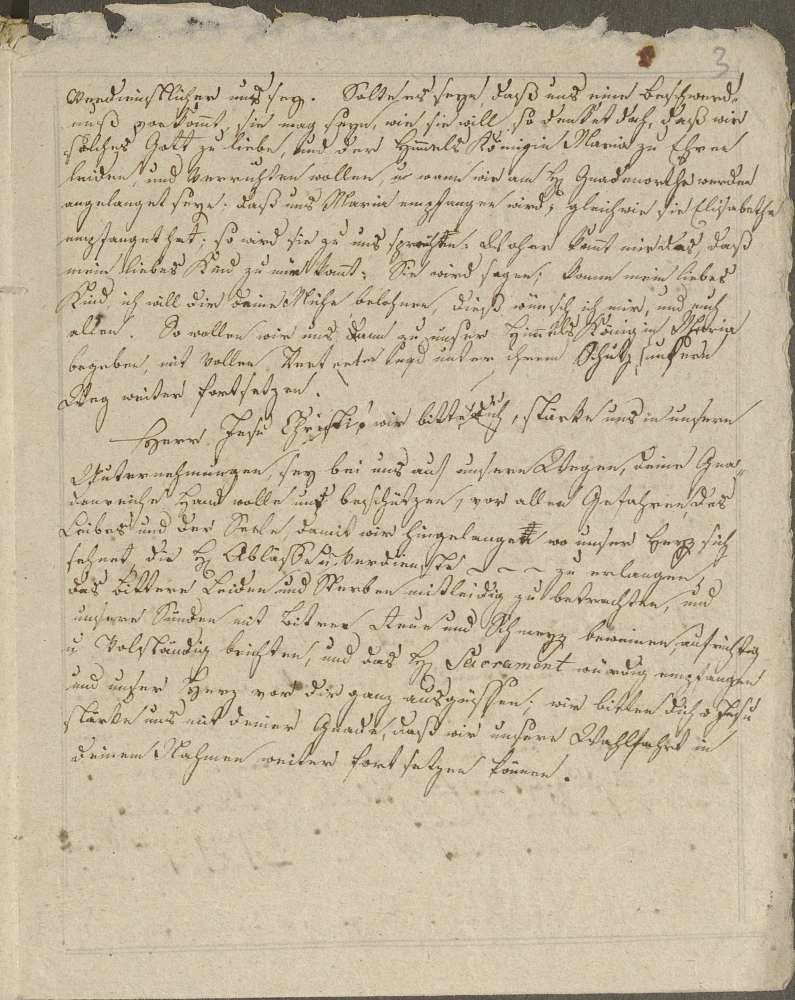 3
verdienstlicher uns sey. Solte es seyn, daß uns eine beschwerd-
nuß vorkomt, sie mag seyn, wie sie will, so denket doch, daß wir
solches Gott zu liebe, und der Himels Königin Maria zu Ehren
leiden, und verrichten wollen, u wann wir am H. Gnadenorthe werden
angelanget seyn. daß uns Maria empfangen wird; gleich wie sie Elisabetha
empfanget hat; so wird sie zu uns sprechen: Woher komt mir das, daß
mein liebes Kind zu mir komt: Sie wird sagen; komm mein liebes
Kind, ich will dir deine Mühe belohnen, dieß wünsch ich mir, und euch
allen. So wollen wir uns dann zu unser Himels Königin Maria
begeben, mit vollen Vertrauen und unter ihrem Schutz unsern
Weg weiter fortsetzen.
Herr Jesu Christi, wir bitte dich, stärke uns in unsern
Unternehmungen, sey bei uns auf unsern Wegen, deine Gna-
denreiche Hand wolle uns beschützen, vor allen Gefahren des
Leibes und der Seele, damit wir hingelangen wo unser Herz sich
sehnet, die H. Abläße u Verdienste ~ ~ ~ zu erlangen,
das bittere Leiden und Sterben mitleidig zu betrachten, und
unsere Sünden mit bitrer Reue und Schmerz beweinen, aufrichtig
u Volständig beichten, und das H. Sacrament würdig empfangen
und unser Herz vor dir ganz ausgüssen; wir bitten dich o Jesu
stärke uns mit deiner Gnade, daß wir unsere Wahlfahrt in
deinem Nahmen weiter fort setzen können.